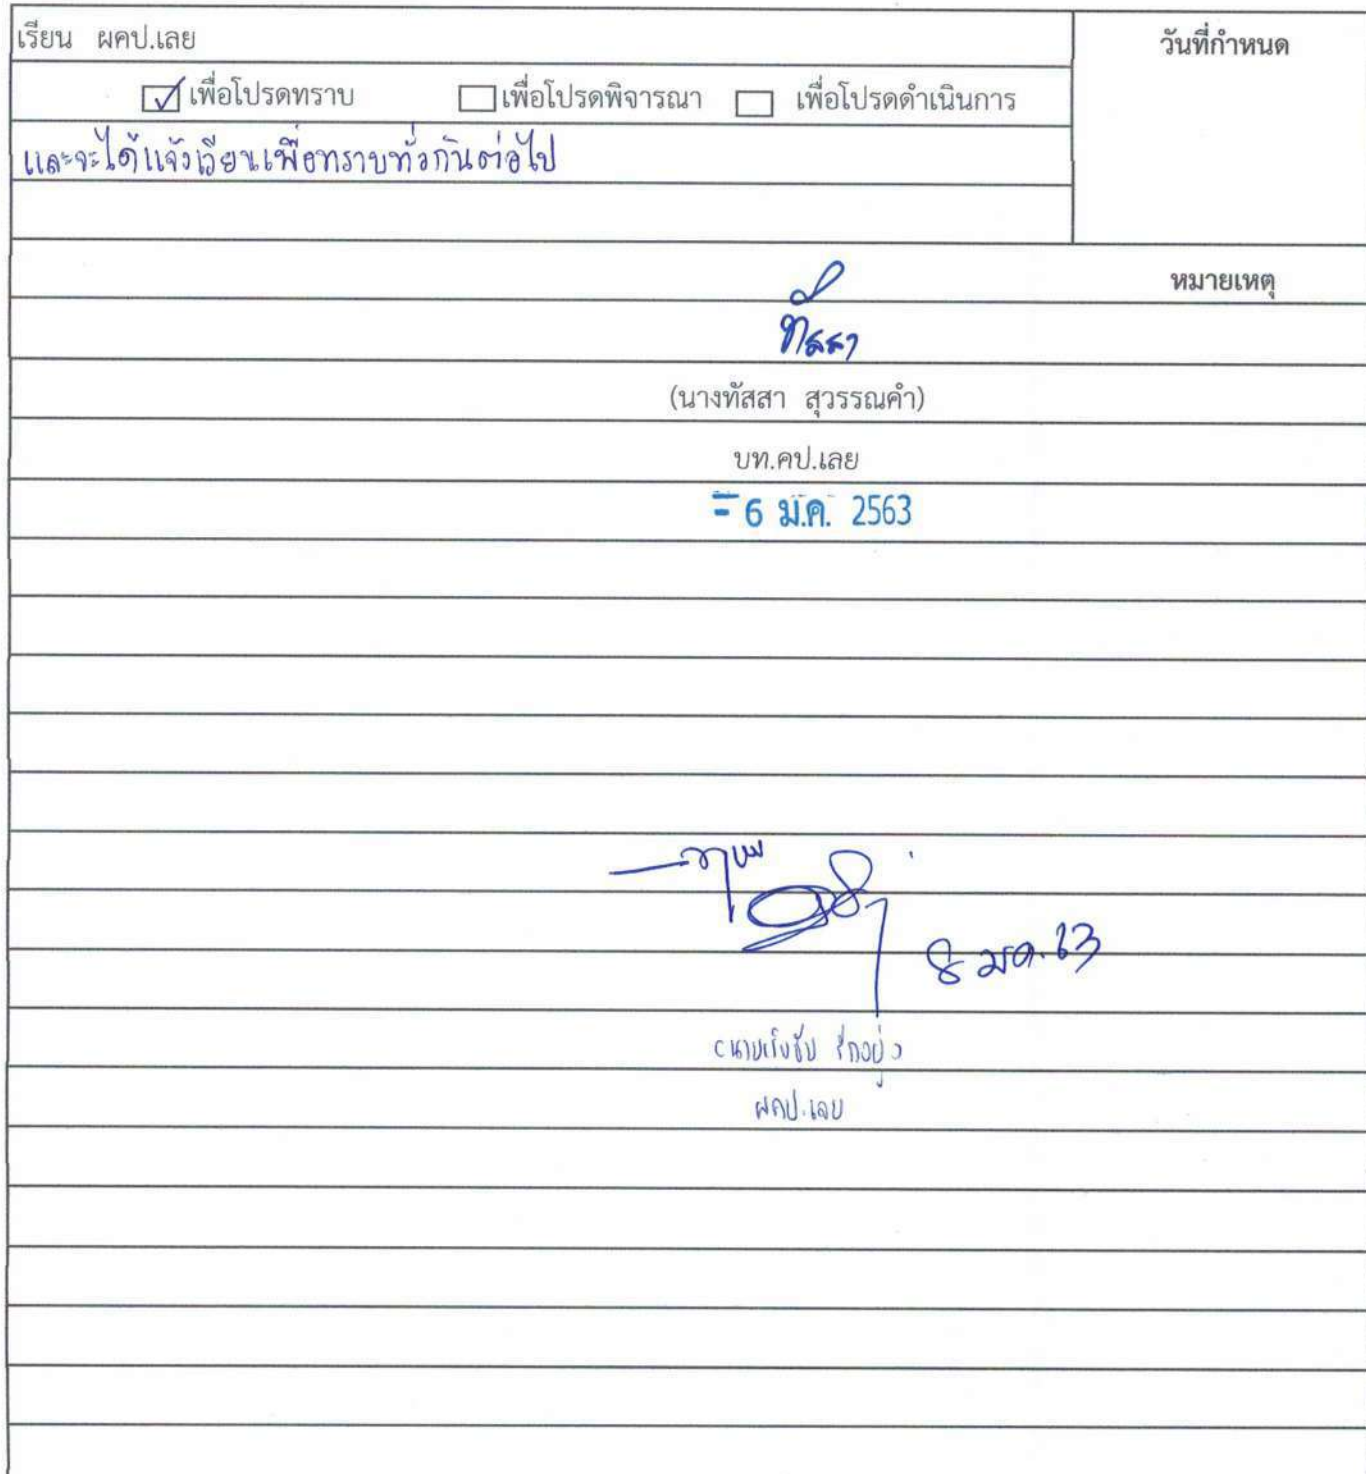 เรียน ผคป.เลย
วันที่กำหนด
เพื่อโปรดทราบ เพื่อโปรดพิจารณา เพื่อโปรดดำเนินการ
และจะได้แจ้งเวียนเพื่อทราบทั่วกันต่อไป
หมายเหตุ
ทัสสา
(นางทัสสา สุวรรณคำ)
บท.คป.เลย
- 6 มี.ค. 2563
8 มค. 63
ผคป.เลย